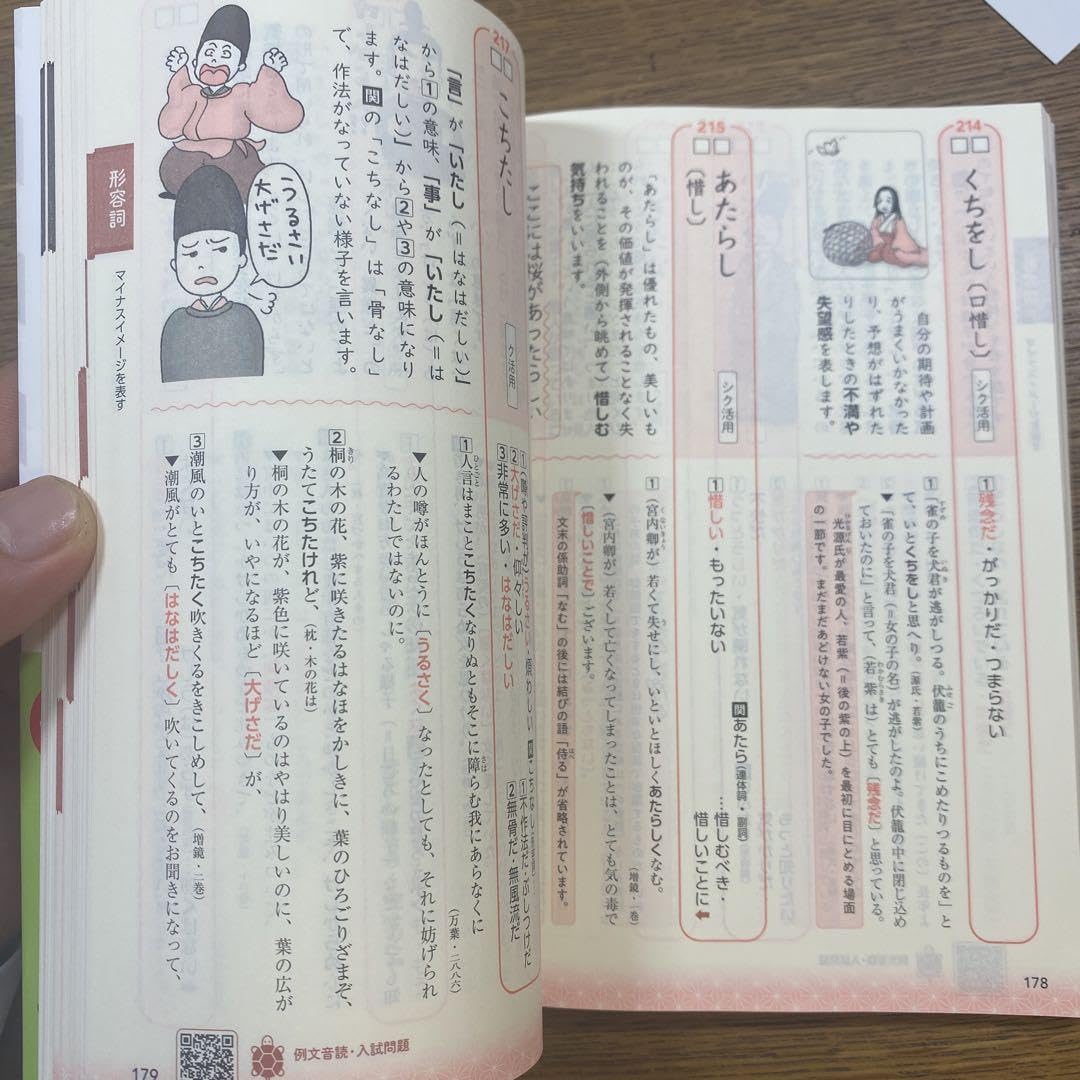 214
くちをし（口惜し）
シク活用
自分の期待や計画
がうまくいかなかった
り、予想がはずれた
りしたときの不満や
失望感を表します。
1 残念だ・がっかりだ・つまらない
1「雀の子を犬君が逃がしつる。伏籠のうちにこめたりつるものを」と
て、いとくちをしと思へり。（源氏・若紫）
▼「雀の子を犬君（＝女の子の名）が逃がしたのよ。伏籠の中に閉じ込め
ておいたのに」と言って、（若紫は）とても〔残念だ〕と思っている。
光源氏が最愛の人、若紫（＝後の紫の上）を最初に目にとめる場面
の一節です。まだまだあどけない女の子でした。
215
あたらし
（惜し）
シク活用
「あたらし」は優れたもの、美しいも
のが、その価値が発揮されることなく失
われることを（外側から眺めて）惜しむ
気持ちをいいます。
1 惜しい・もったいない
関 あたら（連体詞・副詞）
…惜しむべき・
惜しいことに
1（宮内卿が）若くて失せにし、いといとほしくあたらしくなむ。
（増鏡・一巻）
▼（宮内卿が）若くして亡くなってしまったことは、とても気の毒で
〔惜しいことで〕ございます。
文末の係助詞「なむ」の後には結びの語「侍る」が省略されています。
178
217
こちたし
ク活用
「言」が「いたし（＝はなはだしい）」
から1の意味、「事」が「いたし（＝は
なはだしい）」から2や3の意味になり
ます。関の「こちなし」は「骨なし」
で、作法がなっていない様子を言います。
うるさい
大げさだ
1（噂や評判が）うるさい・煩わしい
2 大げさだ・仰々しい
3 非常に多い・はなはだしい
関 こちなし
1 不作法だ・ぶしつけだ
2 無骨だ・無風流だ
1人言はまことこちたくなりぬともそこに障らむ我にあらなくに
（万葉・二八八六）
▼人の噂がほんとうに〔うるさく〕なったとしても、それに妨げられ
るわたしではないのに。
2桐の木の花、紫に咲きたるはなほをかしきに、葉のひろごりざまぞ、
うたてこちたけれど、（枕・木の花は）
▼桐の木の花が、紫色に咲いているのはやはり美しいのに、葉の広が
り方が、いやになるほど〔大げさだ〕が、
3潮風のいとこちたく吹きくるをきこしめして、（増鏡・二巻）
▼潮風がとても〔はなはだしく〕吹いてくるのをお聞きになって、
形容詞
マイナスイメージを表す
例文音読・入試問題
179